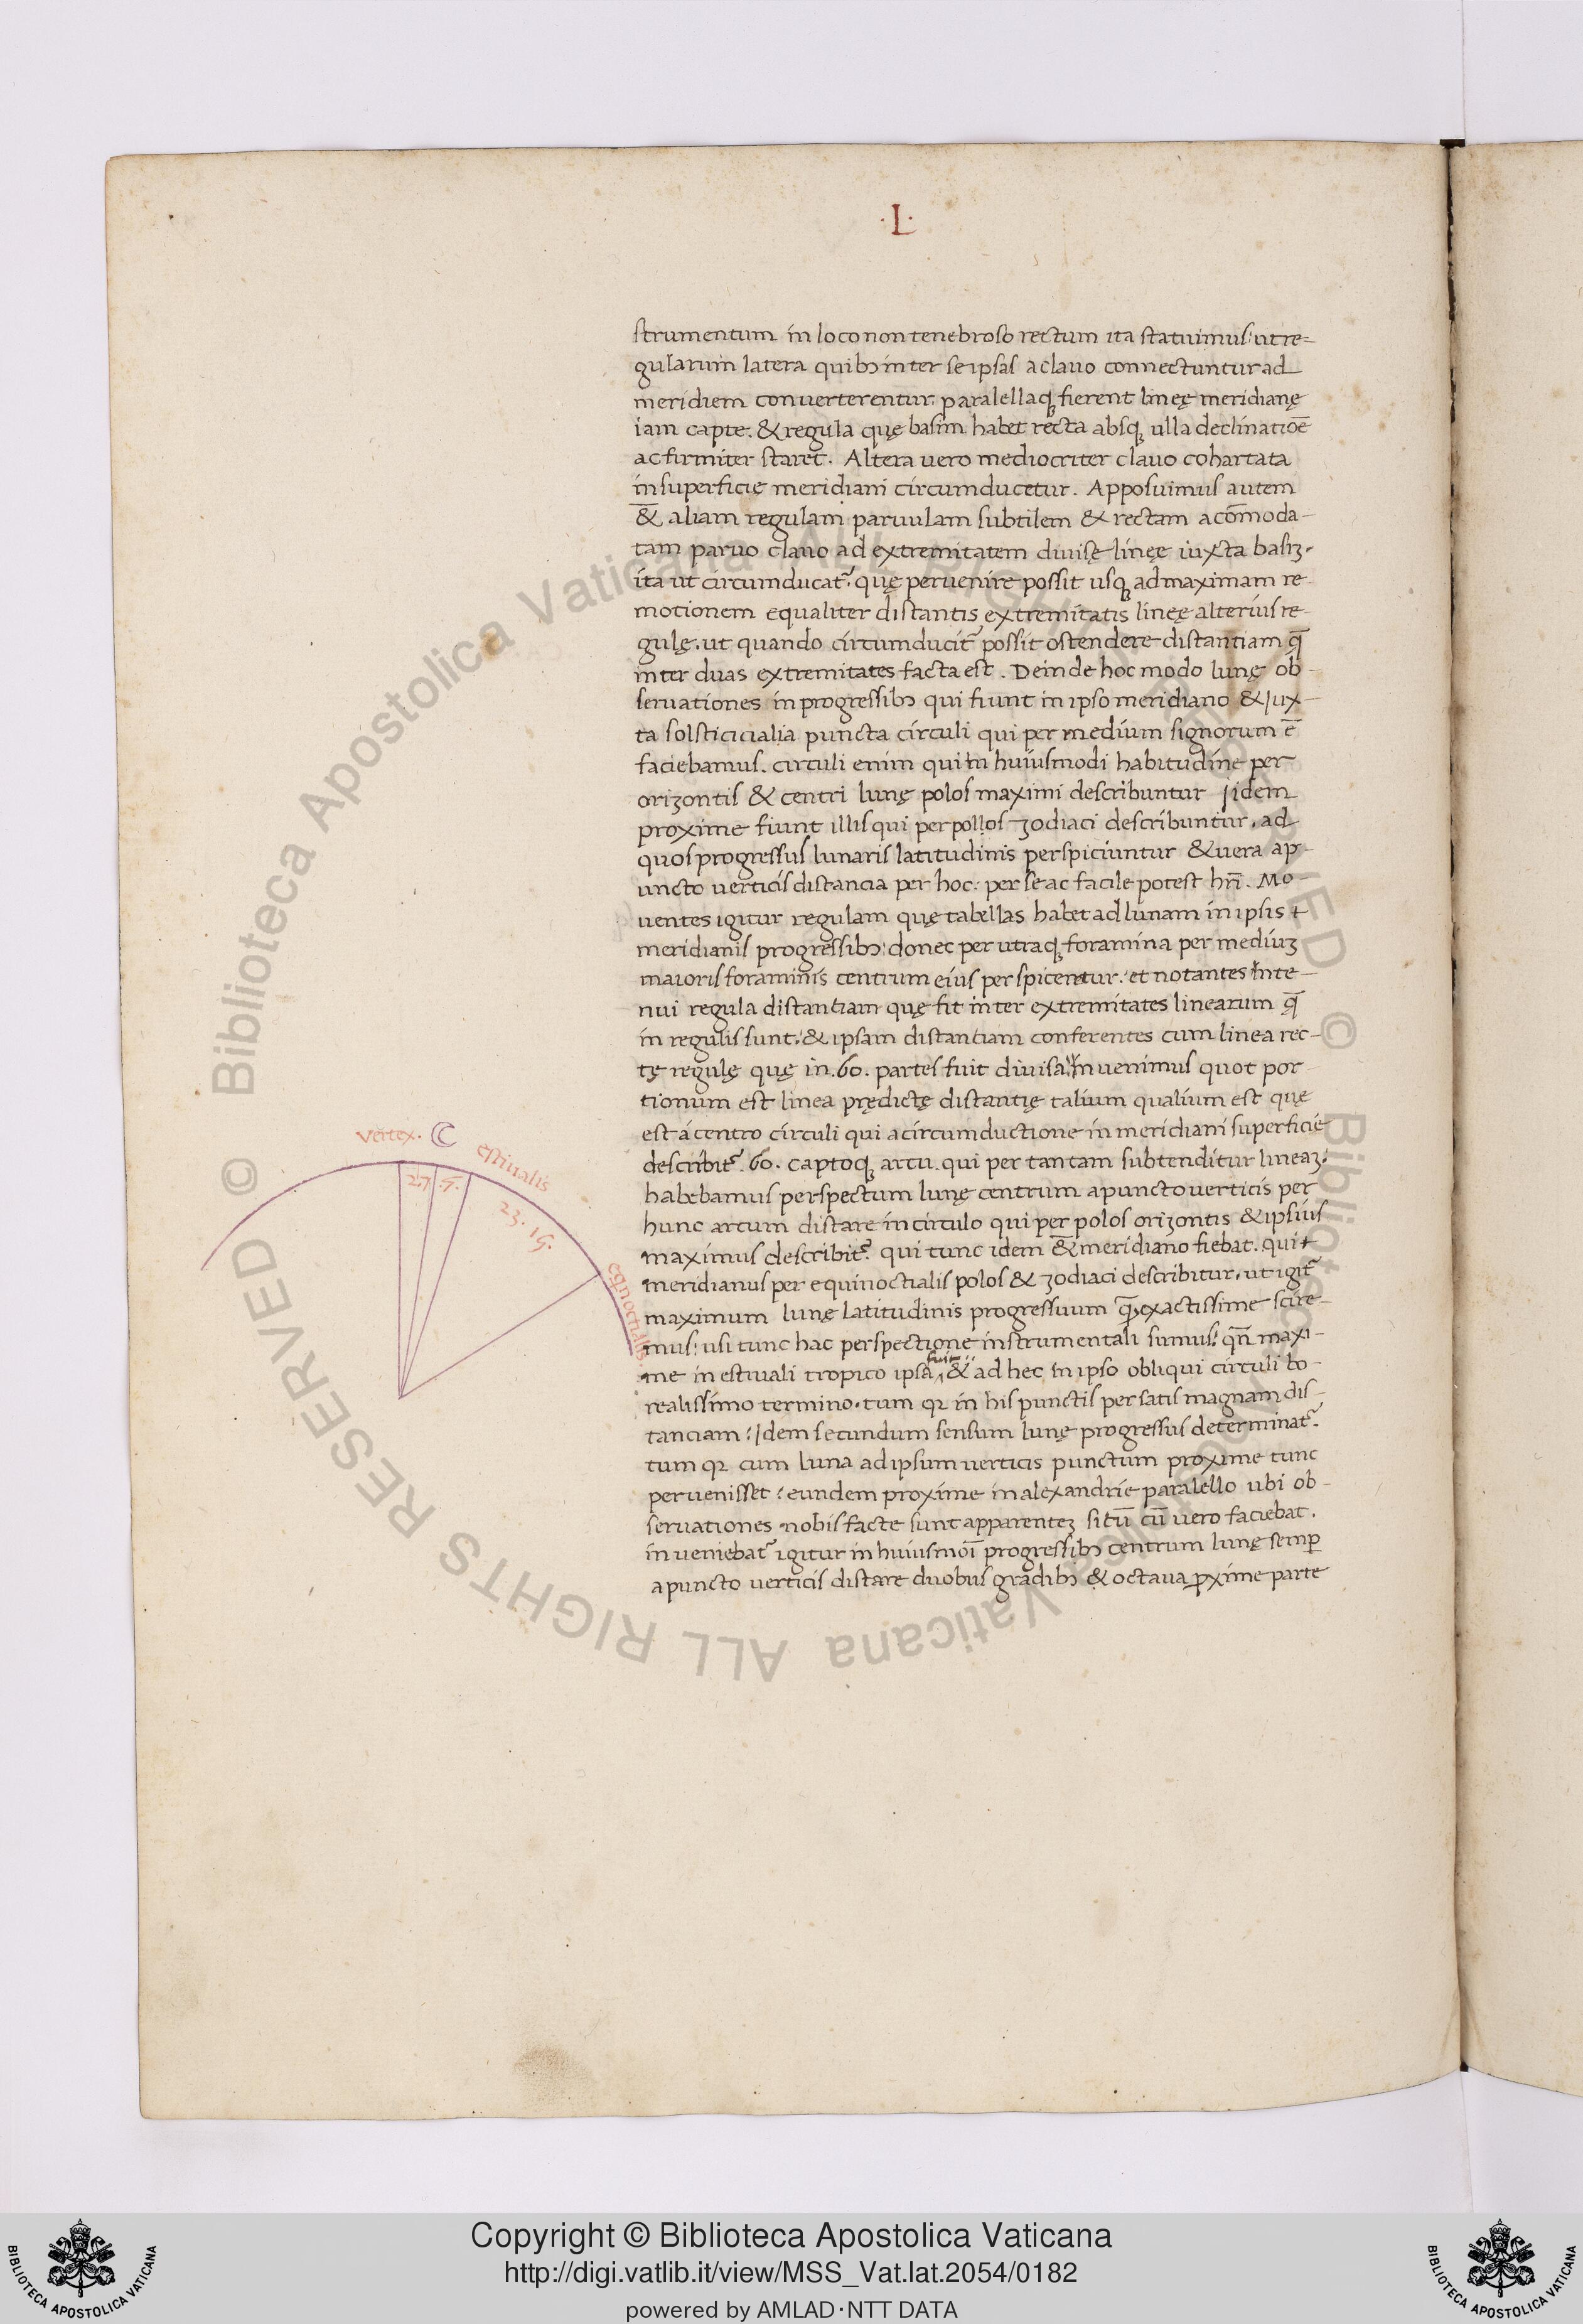 ·L·
strumentum in loco non tenebroso rectum ita statuimus: ut re=
gularum latera quibꝫ inter se ipsas a clauo connectuntur ad
meridiem conuerterentur. paralellaqꝫ fierent lineę meridianę
iam capte. & regula quę basim habet recta absqꝫ ulla declinatiōe
ac firmiter staret. Altera uero mediocriter clauo cohartata
in superficie meridiani circumducetur. Apposuimus autem
& aliam regulam paruulam subtilem & rectam acōmoda-
tam paruo clauo ad extremitatem diuisę lineę iuxta basiꝫ.
ita ut circumducat᷑. quę peruenire possit usqꝫ ad maximam re
motionem equaliter distantis extremitatis lineę alterius re
gulę. ut quando circumducit᷑ possit ostendere distantiam q̄
inter duas extremitates facta est. Deinde hoc modo lunę ob
seruationes in progressibꝫ qui fiunt in ipso meridiano & iux-
ta solsticicialia puncta circuli qui per medium signorum ē
faciebamus. circuli enim qui in huiusmodi habitudine per
orizontis & centri lunę polos maximi describuntur iidem
proxime fiunt illis qui per pollos zodiaci describuntur. ad
quos progressus lunaris latitudinis perspiciuntur & uera ap-
uncto uerticis distancia per hoc: per se ac facile potest hr̄i. Mo-
uentes igitur regulam quę tabellas habet ad lunam in ipsis
meridianis progressibꝫ: donec per utraqꝫ foramina per mediuꝫ
maioris foraminis centrum eius perspiceretur: et notantes inte-
nui regula distantiam quę fit inter extremitates linearum q̄
in regulis sunt: & ipsam distantiam conferentes cum linea rec-
tę regulę quę in .60. partes fuit diuisa: inuenimus quot por
tionum est linea prędictę distantię talium qualium est que
est á centro circuli qui a circumductione in meridiani superficie
describit᷑ .60. captoqꝫ arcu. qui per tantam subtenditur lineaꝫ:
habebamus perspectum lunę centrum a puncto uerticis per
hunc arcum distare in circulo qui per polos orizontis & ipsius
maximus describit᷑ qui tunc idem & meridiano fiebat. qui
meridianus per equinoctialis polos & zodiaci describitur. ut igit᷑
maximum lunę latitudinis progressuum q̄ exactissime scire-
mus: usi tunc hac perspectione instrumentali sumus: qn̄ maxi-
me in estiuali tropico ipsa fuit & ad hec in ipso obliqui circuli bo-
realissimo termino. tum qꝛ in his punctis per satis magnam dis-
tanciam: Idem secundum sensum lunę progressus determinat᷑.
tum qꝛ cum luna ad ipsum uerticis punctum proxime tunc
peruenisset: eundem proxime in alexandrie paralello ubi ob-
seruationes nobis facte sunt apparenteꝫ sitū cū uero faciebat.
inueniebat᷑ igitur in huiusmōi progressibꝫ centrum lunę semꝑ
a puncto uerticis distare duobus gradibꝫ & octaua ꝓxime parte
vertex. ☾
estiualis
27 .5.
23. 15.
eqnoctialis
Copyright © Biblioteca Apostolica Vaticana
http://digi.vatlib.it/view/MSS_Vat.lat.2054/0182
powered by AMLAD·NTT DATA
BIBLIOTECA APOSTOLICA VATICANA
BIBLIOTECA APOSTOLICA VATICANA
© Biblioteca Apostolica Vaticana ALL RIGHTS RESERVED
© Biblioteca Apostolica Vaticana ALL RIGHTS RESERVED